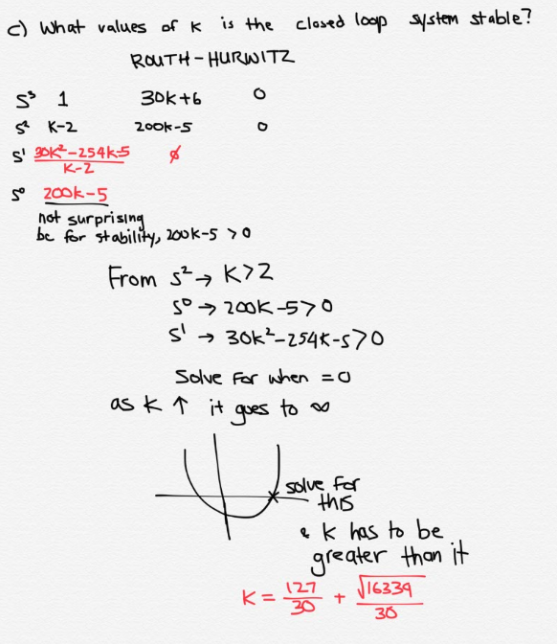 c) What values of K is the closed loop system stable?
ROUTH-HURWITZ
S³ 1 30K+6 0
S² K-2 200K-5 0
S¹ 30K²-254K-5 / K-2 ∅
S⁰ 200K-5
not surprising
bc for stability, 200K-5 >0
From S² → K>2
S⁰ → 200K-5>0
S¹ → 30K²-254K-5>0
Solve for when =0
as K ↑ it goes to ∞
solve for
this
& K has to be
greater than it
K = 127/30 + √16339/30